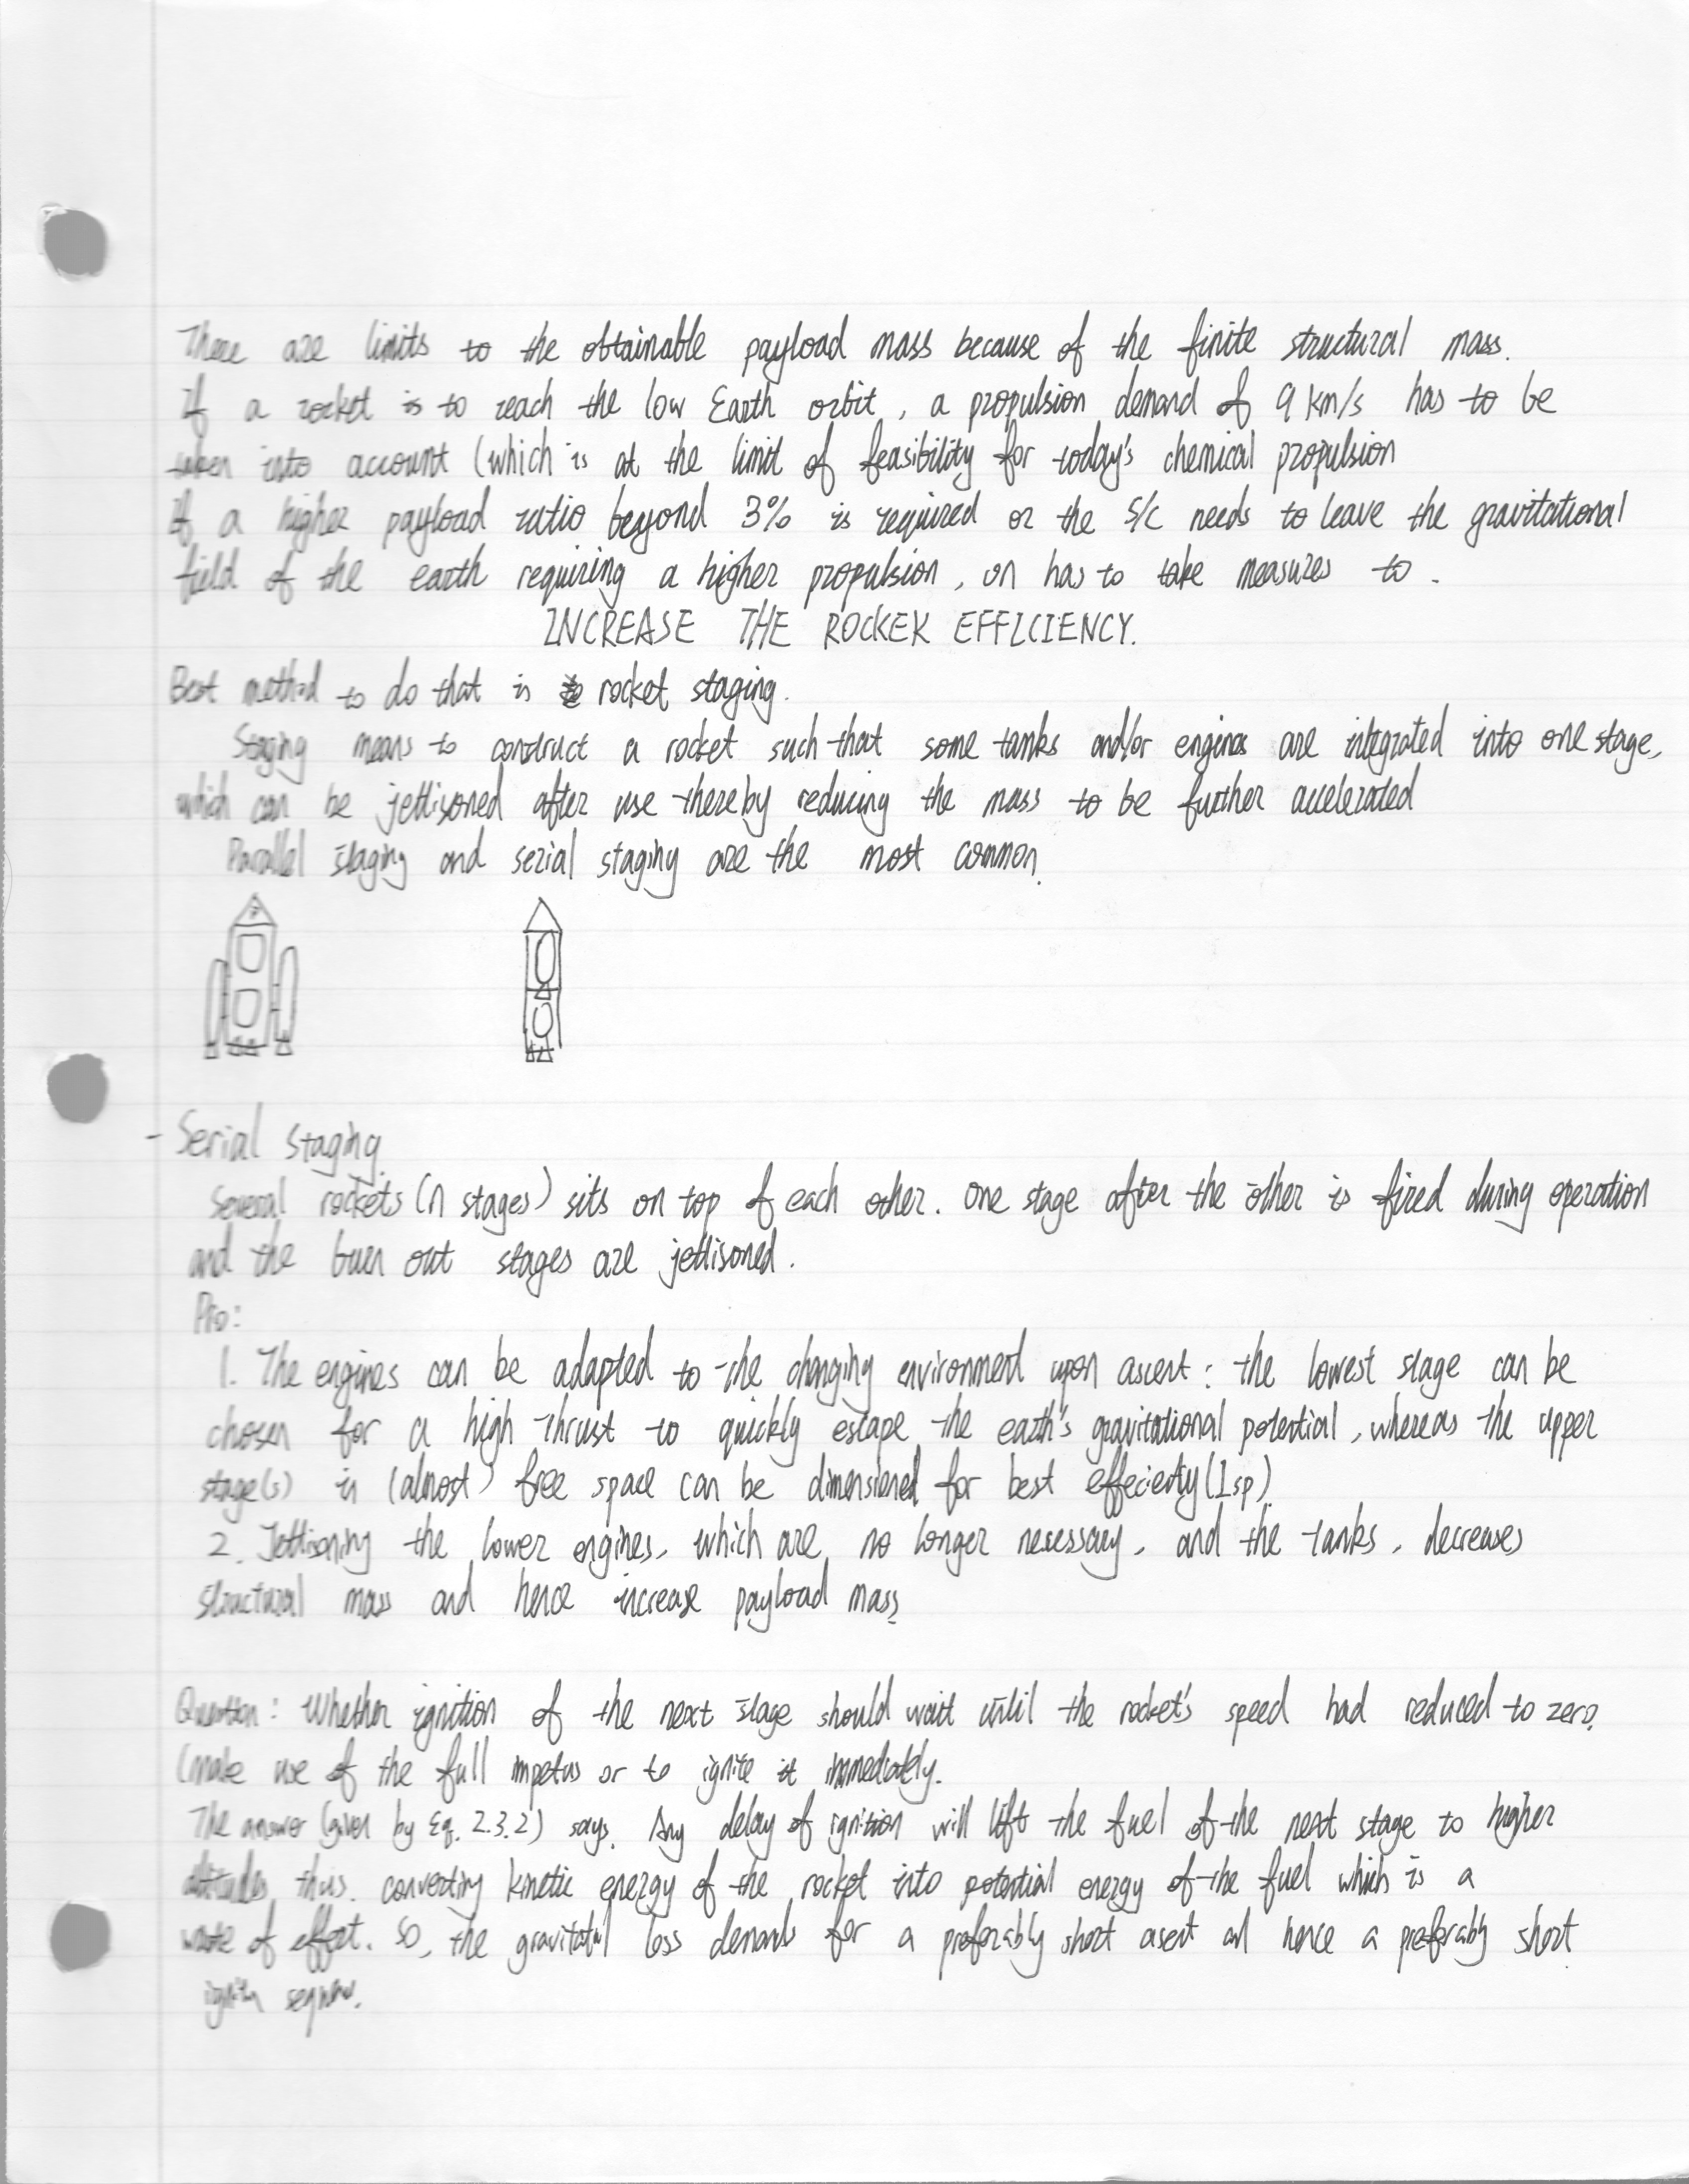 There are limits to the obtainable payload mass because of the finite structural mass.
If a rocket is to reach the low Earth orbit, a propulsion demand of 9 km/s has to be
taken into account (which is at the limit of feasibility for today's chemical propulsion
If a higher payload ratio beyond 3% is required or the S/C needs to leave the gravitational
field of the earth requiring a higher propulsion, on has to take measures to.
INCREASE THE ROCKEK EFFICIENCY.
Best method to do that is rocket staging.
Staging means to construct a rocket such that some tanks and/or engines are integrated into one stage,
which can be jettisoned after use thereby reducing the mass to be further accelerated
Parallel staging and serial staging are the most common.
P
- Serial staging
Several rockets (n stages) sits on top of each other. One stage after the other is fired during operation
and the burn out stages are jettisoned.
Pro:
1. The engines can be adapted to the changing environment upon ascent: the lowest stage can be
chosen for a high thrust to quickly escape the earth's gravitational potential, whereas the upper
stage(s) in (almost) free space can be dimensioned for best (Isp).
2. Jettisoning the lower engines, which are no longer necessary, and the tanks, decreases
structural mass and hence increase payload mass
Question: Whether ignition of the next stage should wait until the rocket's speed had reduced to zero.
(make use of the full impetus or to ignite it immediately.
The answer (given by Eq. 2.3.2) says. Any delay of ignition will lift the fuel of the next stage to higher
altitudes, thus. converting kinetic energy of the rocket into potential energy of the fuel which is a
waste of effort. So, the loss demands for a preferably short ascent and hence a preferably short